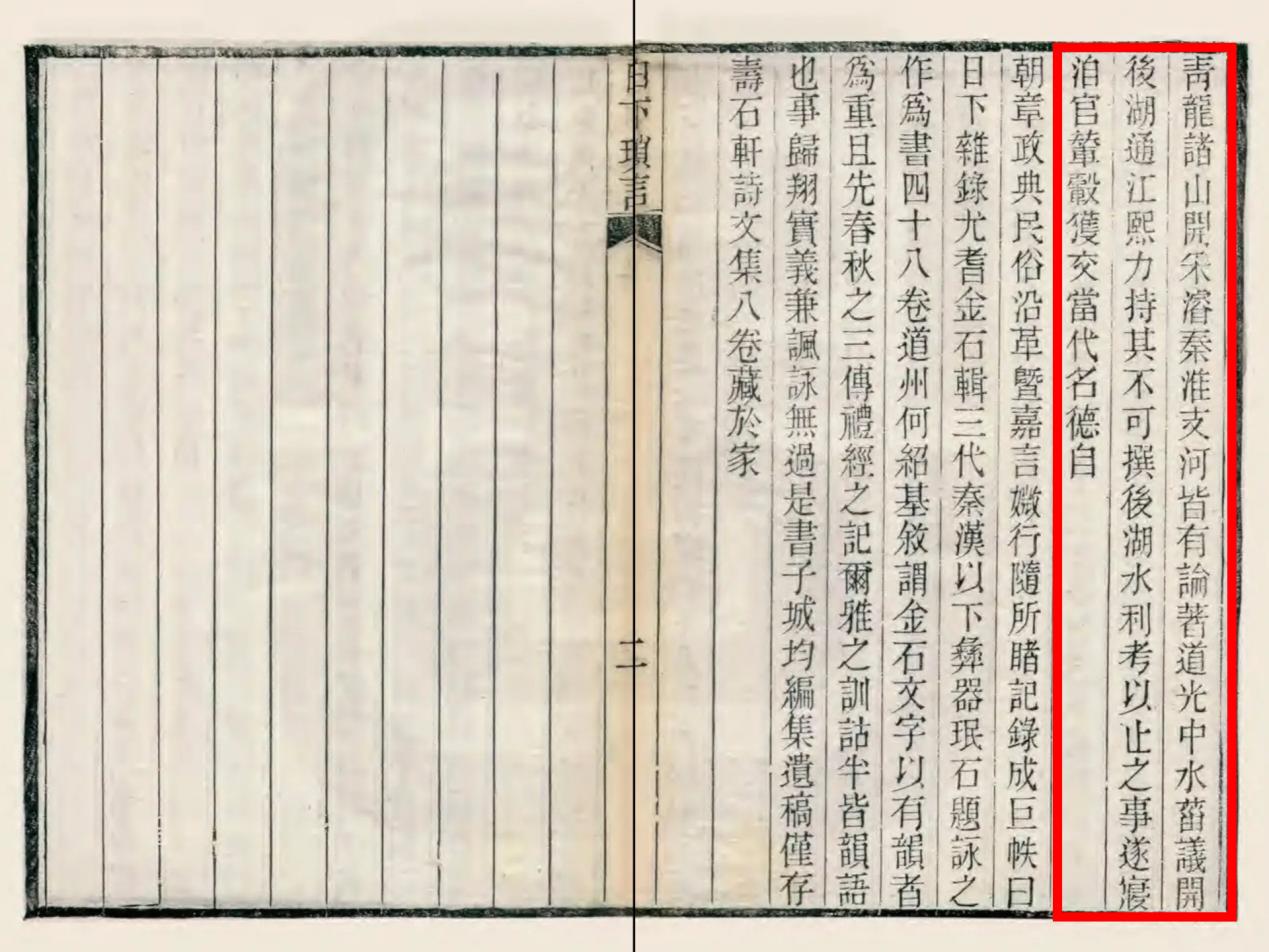 青龍諸山開采濬秦淮支河皆有論著道光中水菑議開
後湖通江熙力持其不可撰後湖水利考以止之事遂寢
洎官輦轂獲交當代名德自
朝章政典民俗沿革曁嘉言媺行隨所睹記錄成巨帙曰
日下雜錄尤耆金石輯三代秦漢以下彝器珉石題詠之
作爲書四十八卷道州何紹基敘謂金石文字以有韻者
爲重且先春秋之三傳禮經之記爾雅之訓詁半皆韻語
也事歸翔實義兼諷詠無過是書子城均編集遺稿僅存
壽石軒詩文集八卷藏於家
白下瑣言
二